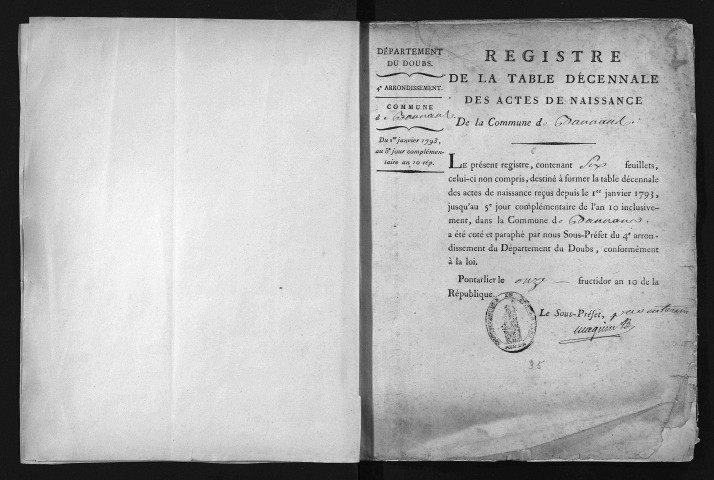 DÉPARTEMENT
DU DOUBS.
4e ARRONDISSEMENT.
COMMUNE
d e Bannans
Du 1er janvier 1793,
au 5e jour complémen-
taire an 10 rép.
REGISTRE
DE LA TABLE DÉCENNALE
DES ACTES DE NAISSANCE
De la Commune de Bannans
LE présent registre, contenant Six feuillets,
celui-ci non compris, destiné à former la table décennale
des actes de naissance reçus depuis le 1er janvier 1793,
jusqu'au 5e jour complémentaire de l'an 10 inclusive-
ment, dans la Commune de Bannans
a été coté et paraphé par nous Sous-Préfet du 4e arron-
dissement du Département du Doubs, conformément
à la loi.
Pontarlier le onze fructidor an 10 de la
République.
Le Sous-Préfet, par interim
35